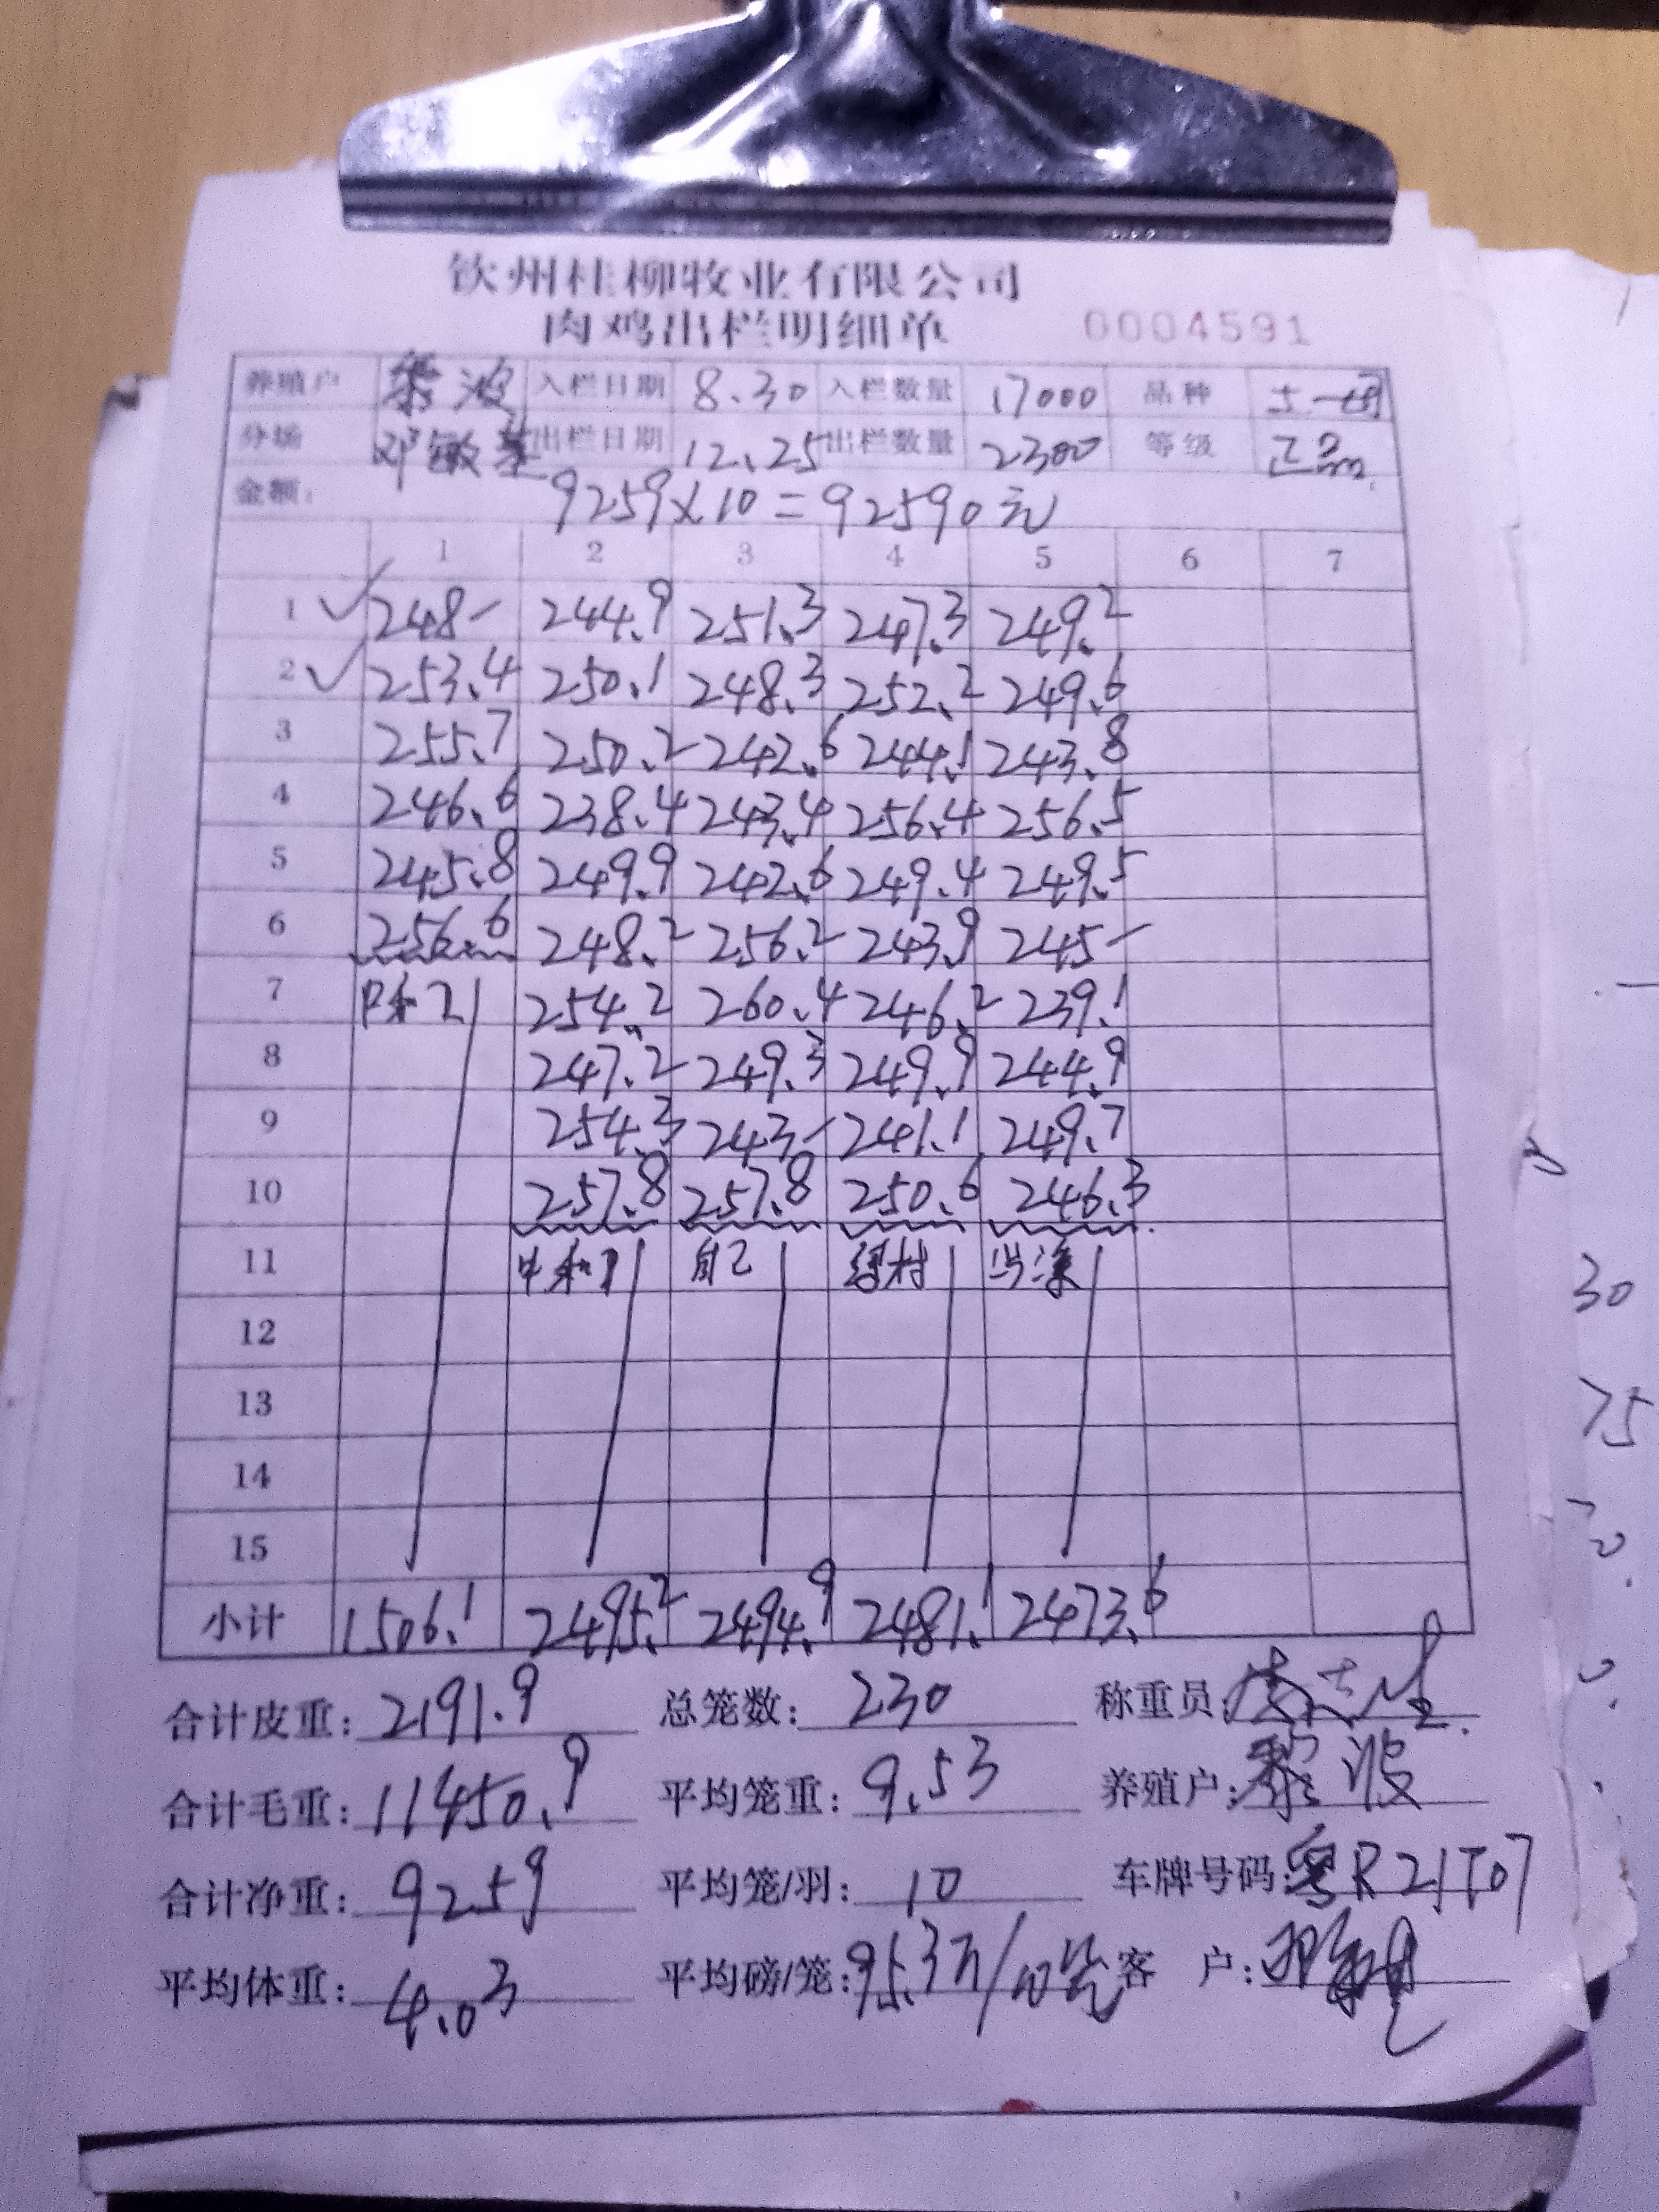 钦州桂柳牧业有限公司
肉鸡出栏明细单 0004591
养殖户 黎波 入栏日期 8.30 入栏数量 17000 品种 土一
分场 邓敏 出栏日期 12.25 出栏数量 2300 等级 正品
金额: 9259×10=92590元
1 2 3 4 5 6 7
1 ✓ 248- 244.9 251.3 247.3 249.2
2 ✓ 253.4 250.1 248.3 252.2 249.6
3 255.7 250.2 242.6 244.1 243.8
4 246.6 238.4 243.4 256.4 256.5
5 245.8 249.9 242.6 249.4 249.5
6 256.6 248.2 256.2 243.9 245-
7 中和2 254.2 260.4 246.2 239.1
8 247.2 249.3 249.9 244.9
9 254.3 243- 241.1 249.7
10 257.8 257.8 250.6 246.3
11 中和1 自己 村
12
13
14
15
小计 1506.1 2495.2 2494.9 2481.1 2473.6
合计皮重: 2191.9 总笼数: 230 称重员:
合计毛重: 11450.9 平均笼重: 9.53 养殖户: 黎波
合计净重: 9259 平均笼/羽: 10 车牌号码: 粤R21T07
平均体重: 4.03 平均磅/笼: 95.3斤/10笼 客 户:
30
75